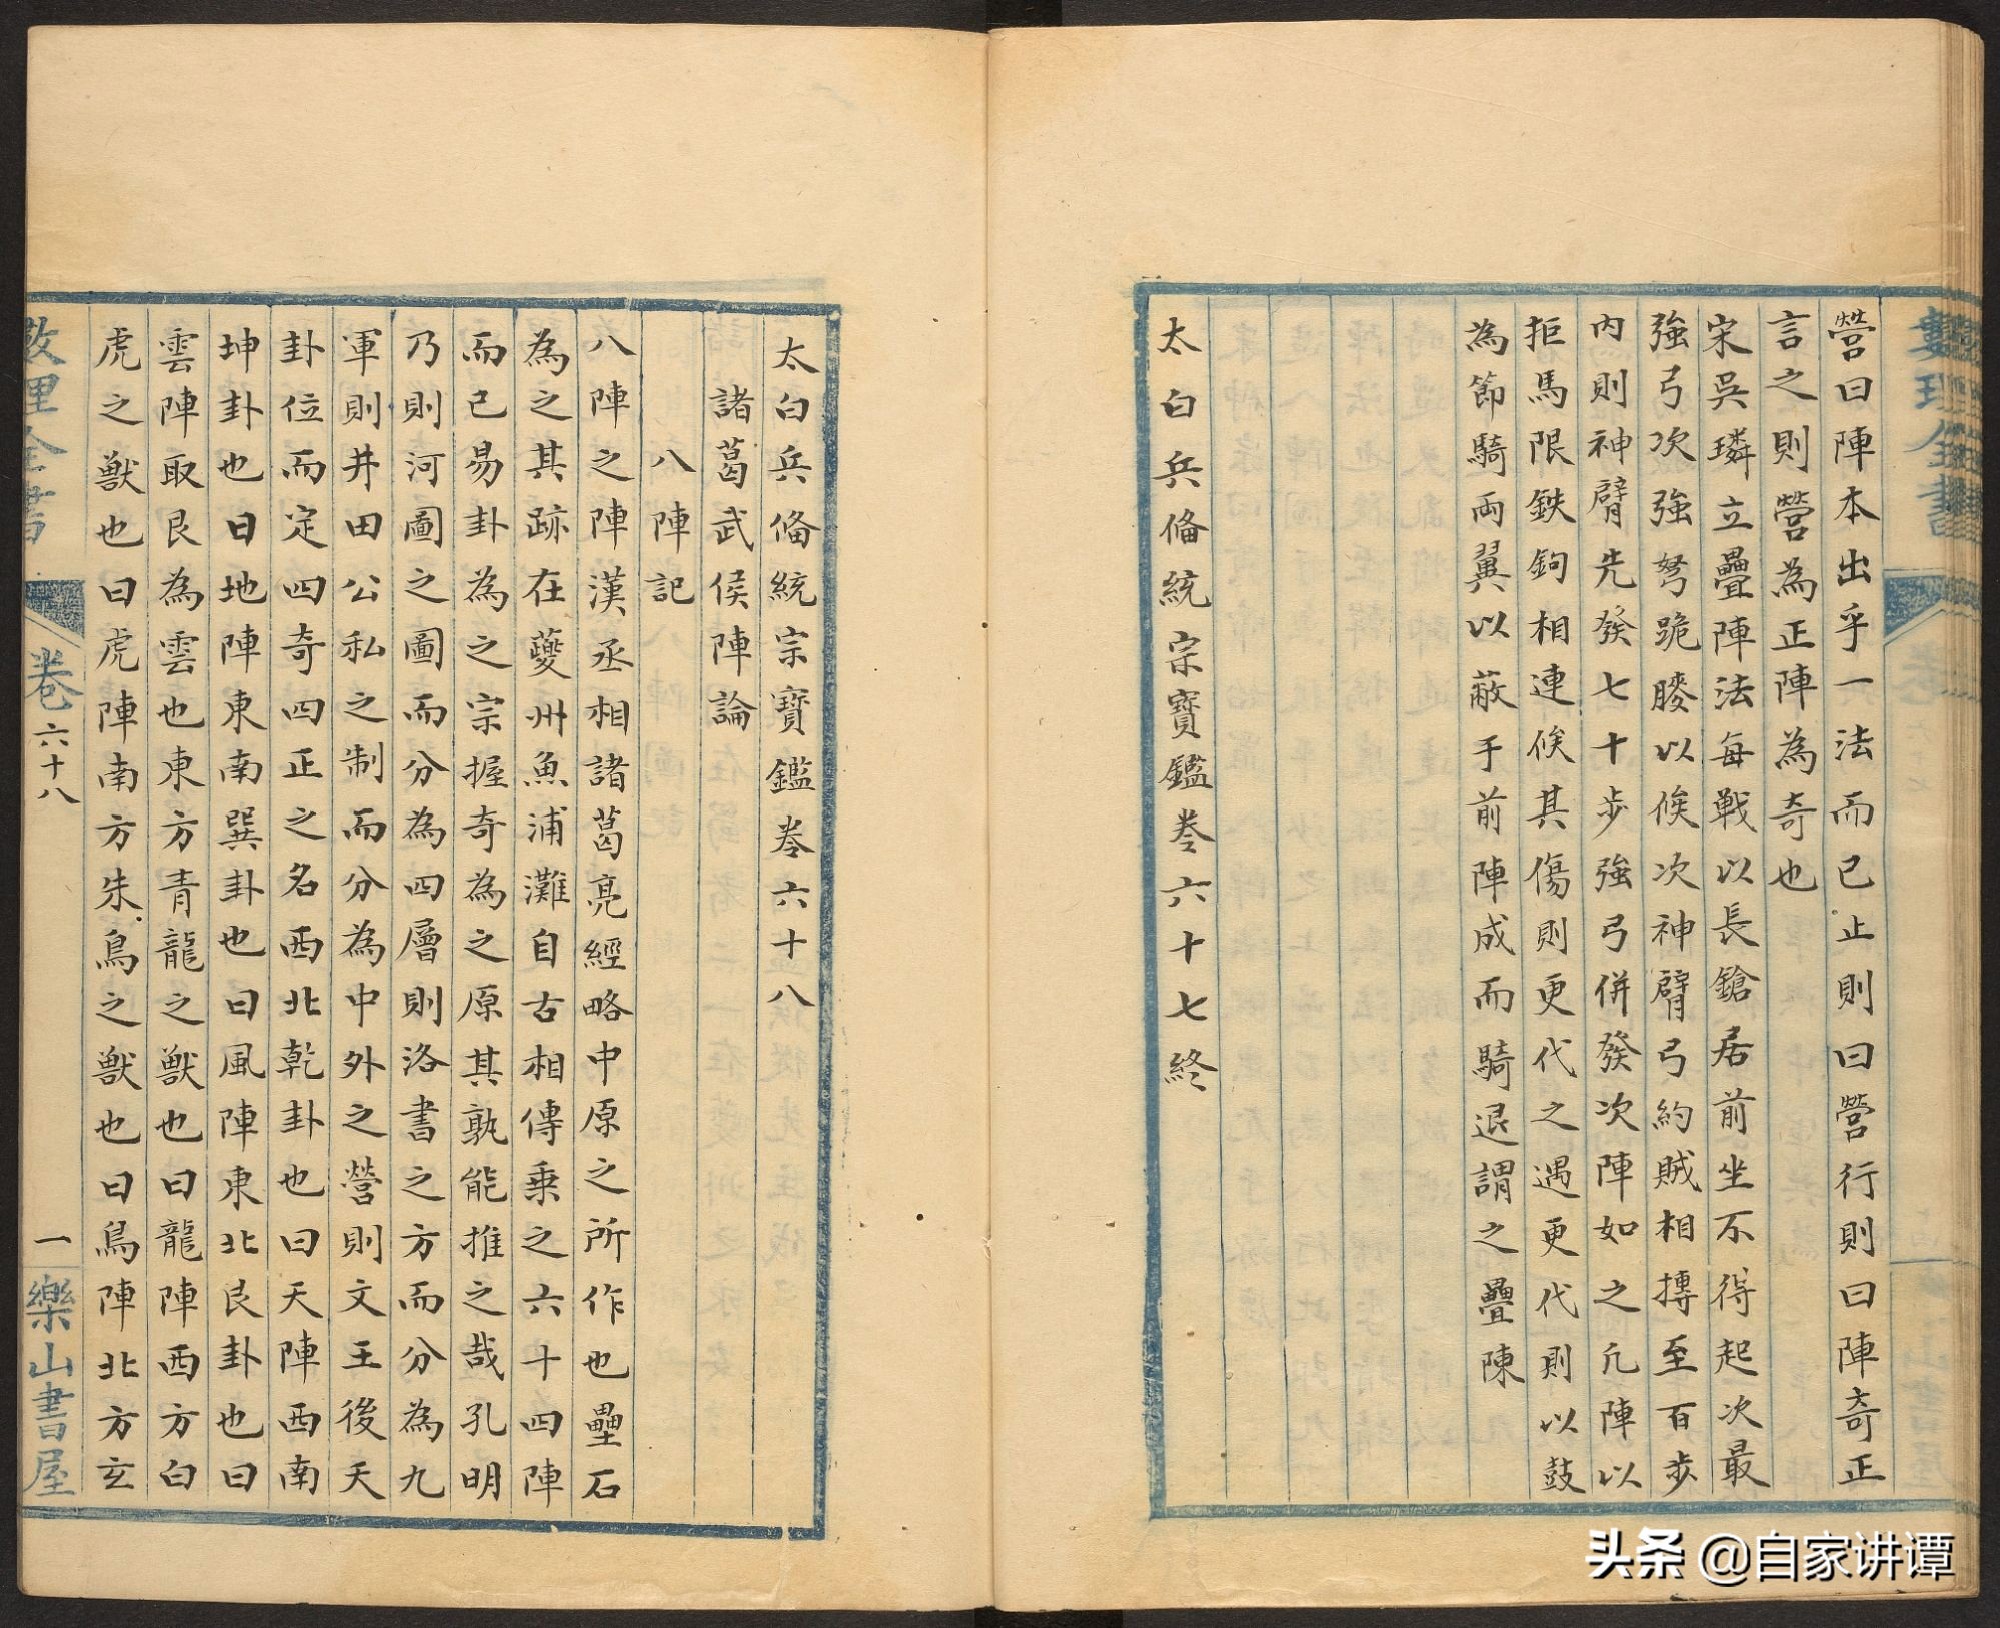 營曰陣本出乎一法而已止則曰營行則曰陣奇正
言之則營為正陣為奇也
宋吳璘立疊陣法每戰以長鎗居前坐不得起次最
強弓次強弩跪膝以俟次神臂弓約賊相摶至百步
內則神臂先發七十步強弓併發次陣如之凢陣以
拒馬限鉄鉤相連俟其傷則更代之遇更代則以鼓
為節騎両翼以蔽于前陣成而騎退謂之疊陳
太白兵俻統宗寶鑑卷六十七終
太白兵俻統宗寶鑑卷六十八
諸葛武侯陣論
八陣記
八陣之陣漢丞相諸葛亮經略中原之所作也壘石
為之其跡在夔州魚浦灘自古相傳乗之六十四陣
而已易卦為之宗握奇為之原其孰能推之哉孔明
乃則河圖之圖而分為四層則洛書之方而分為九
軍則井田公私之制而分為中外之營則文王後天
卦位而定四奇四正之名西北乾卦也曰天陣西南
坤卦也曰地陣東南巽卦也曰風陣東北艮卦也曰
雲陣取艮為雲也東方青龍之獸也曰龍陣西方白
虎之獸也曰虎陣南方朱鳥之獸也曰鳥陣北方玄
數理全書
卷六十八
一
樂山書屋
头条 @自家讲谭